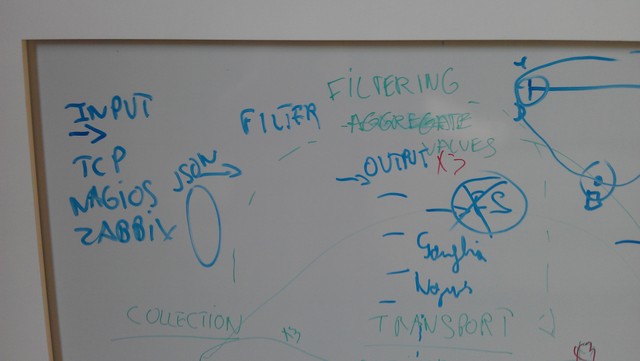 INPUT
TCP
NAGIOS
ZABBIX
JSON
FILTER
FILTERING
AGGREGATE
VALUES
OUTPUT X3
ES
Ganglia
Nagios
COLLECTION
X3
TRANSPORT
X3